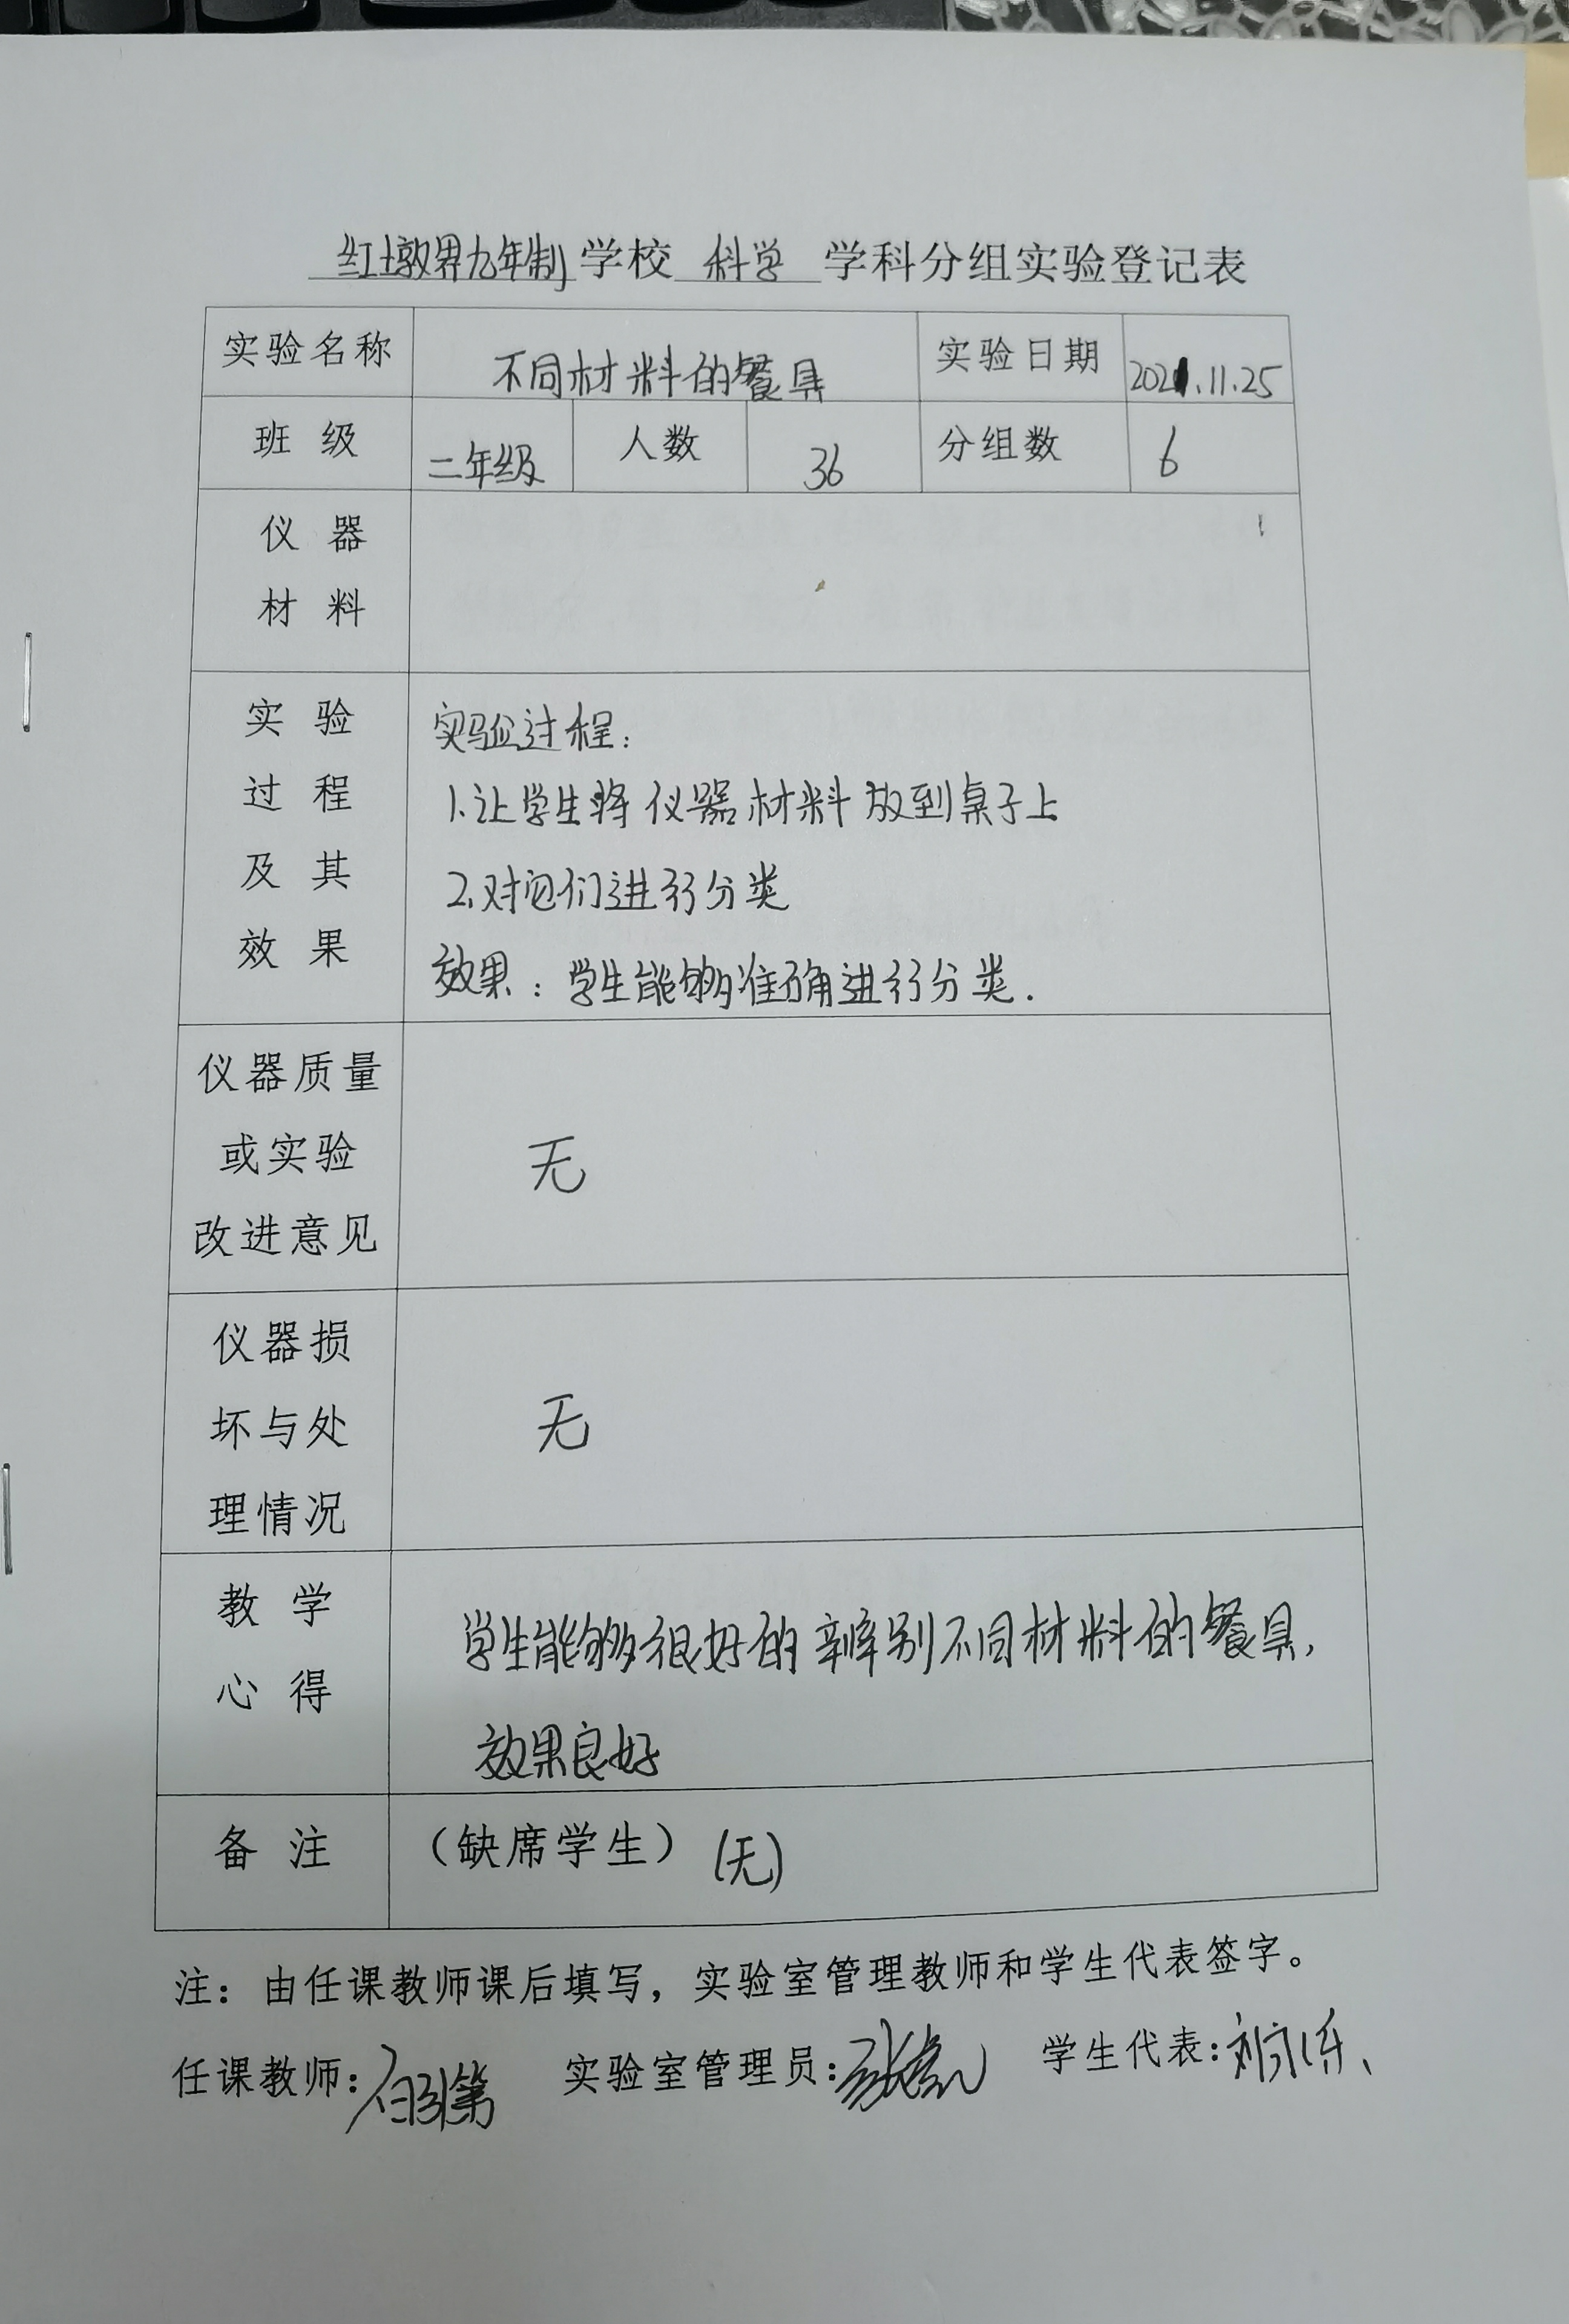 红墩界九年制学校 科学 学科分组实验登记表
实验名称 不同材料的餐具 实验日期 2021.11.25
班 级 二年级 人数 36 分组数 6
仪 器
材 料
实 验 实验过程:
过 程 1.让学生将仪器材料放到桌子上
及 其 2.对它们进行分类
效 果 效果:学生能够准确进行分类.
仪器质量
或实验 无
改进意见
仪器损
坏与处 无
理情况
教 学 学生能够很好的辨别不同材料的餐具,
心 得 效果良好
备 注 (缺席学生) (无)
注:由任课教师课后填写,实验室管理教师和学生代表签字。
任课教师: 实验室管理员: 学生代表: